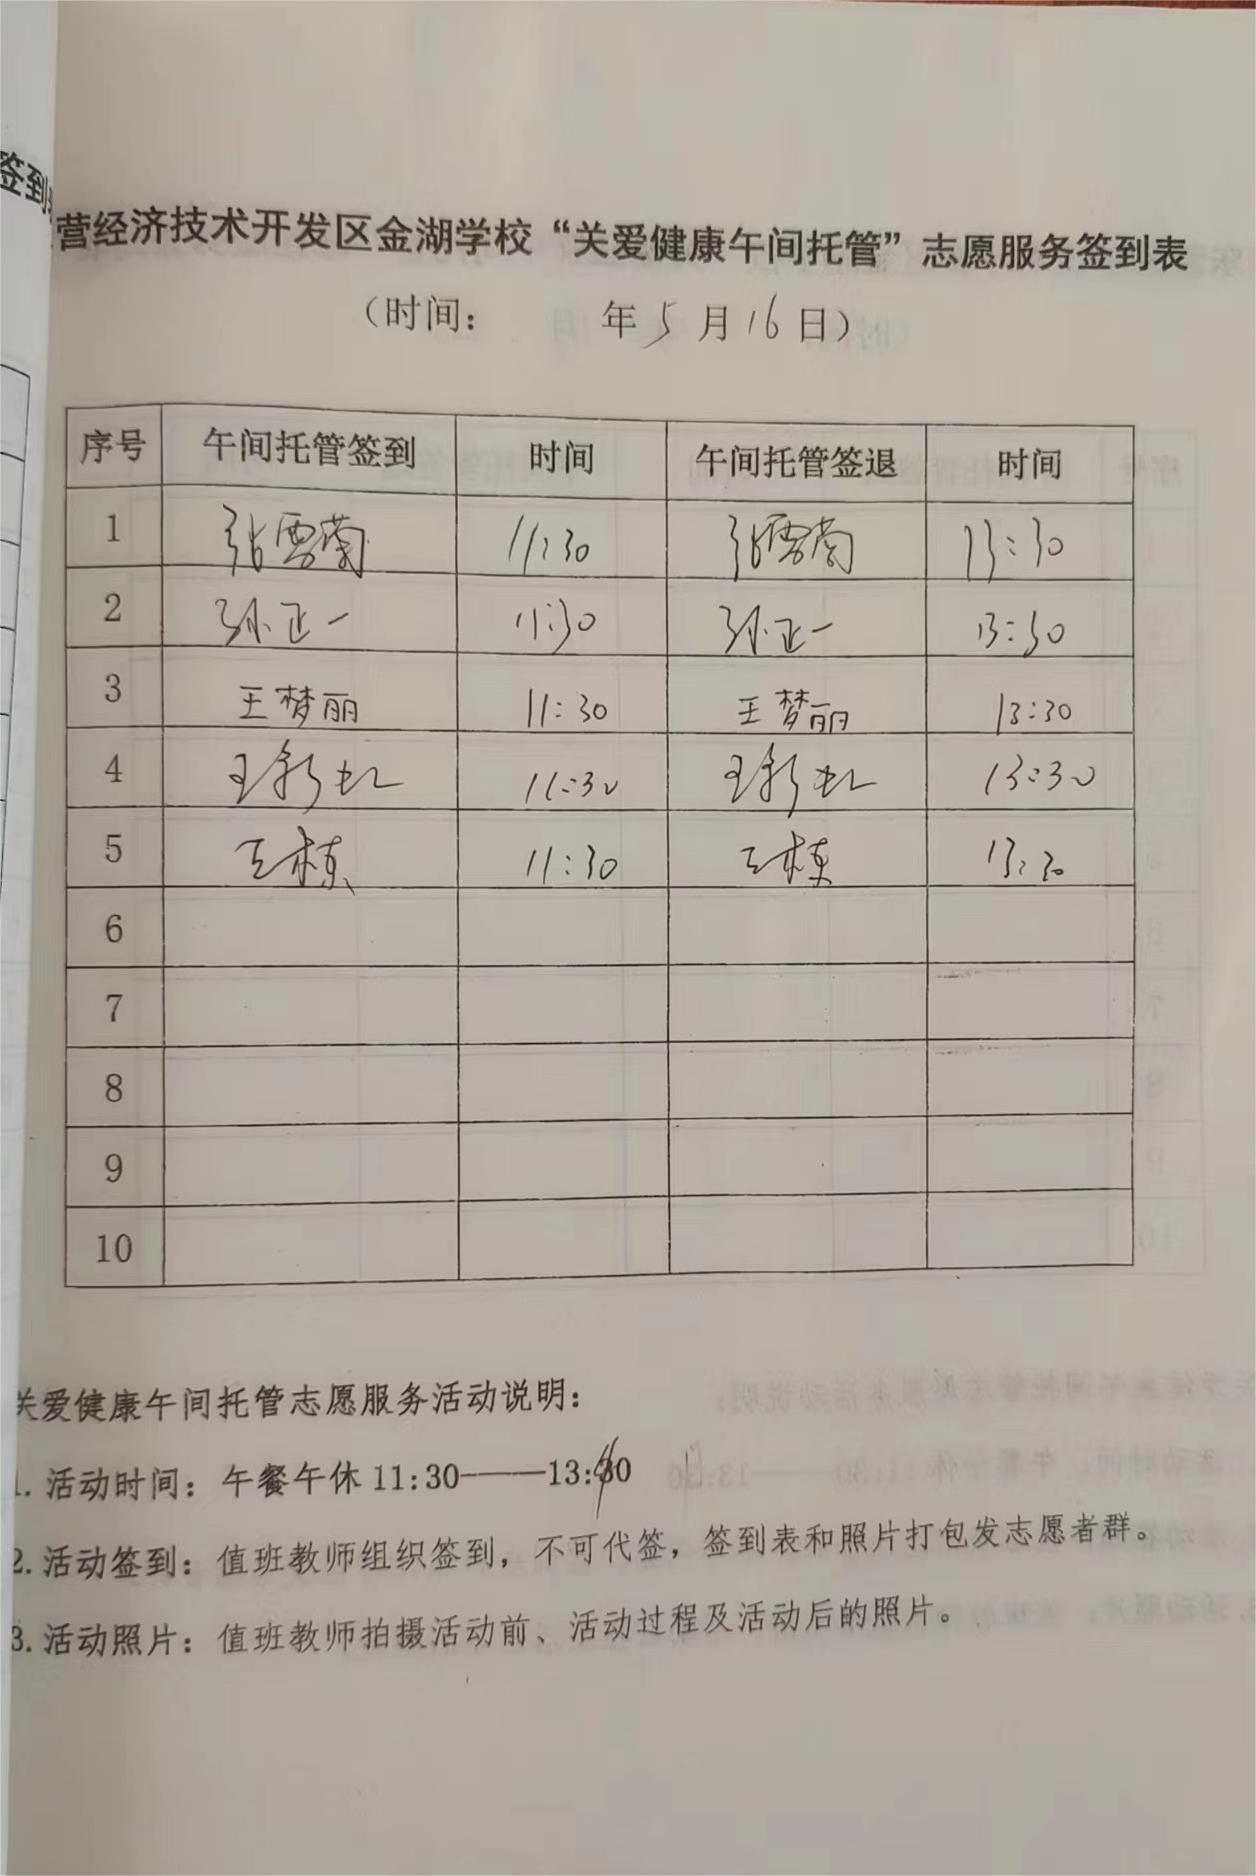 签到
营经济技术开发区金湖学校“关爱健康午间托管”志愿服务签到表
（时间： 年5月16日）
序号 午间托管签到 时间 午间托管签退 时间
1 张雪菊 11:30 张雪菊 13:30
2 孙正一 11:30 孙正一 13:30
3 王梦丽 11:30 王梦丽 13:30
4 王彩虹 11:30 王彩虹 13:30
5 王栋 11:30 王栋 13:30
6
7
8
9
10
关爱健康午间托管志愿服务活动说明：
1. 活动时间：午餐午休 11:30——13:30
2. 活动签到：值班教师组织签到，不可代签，签到表和照片打包发志愿者群。
3. 活动照片：值班教师拍摄活动前、活动过程及活动后的照片。